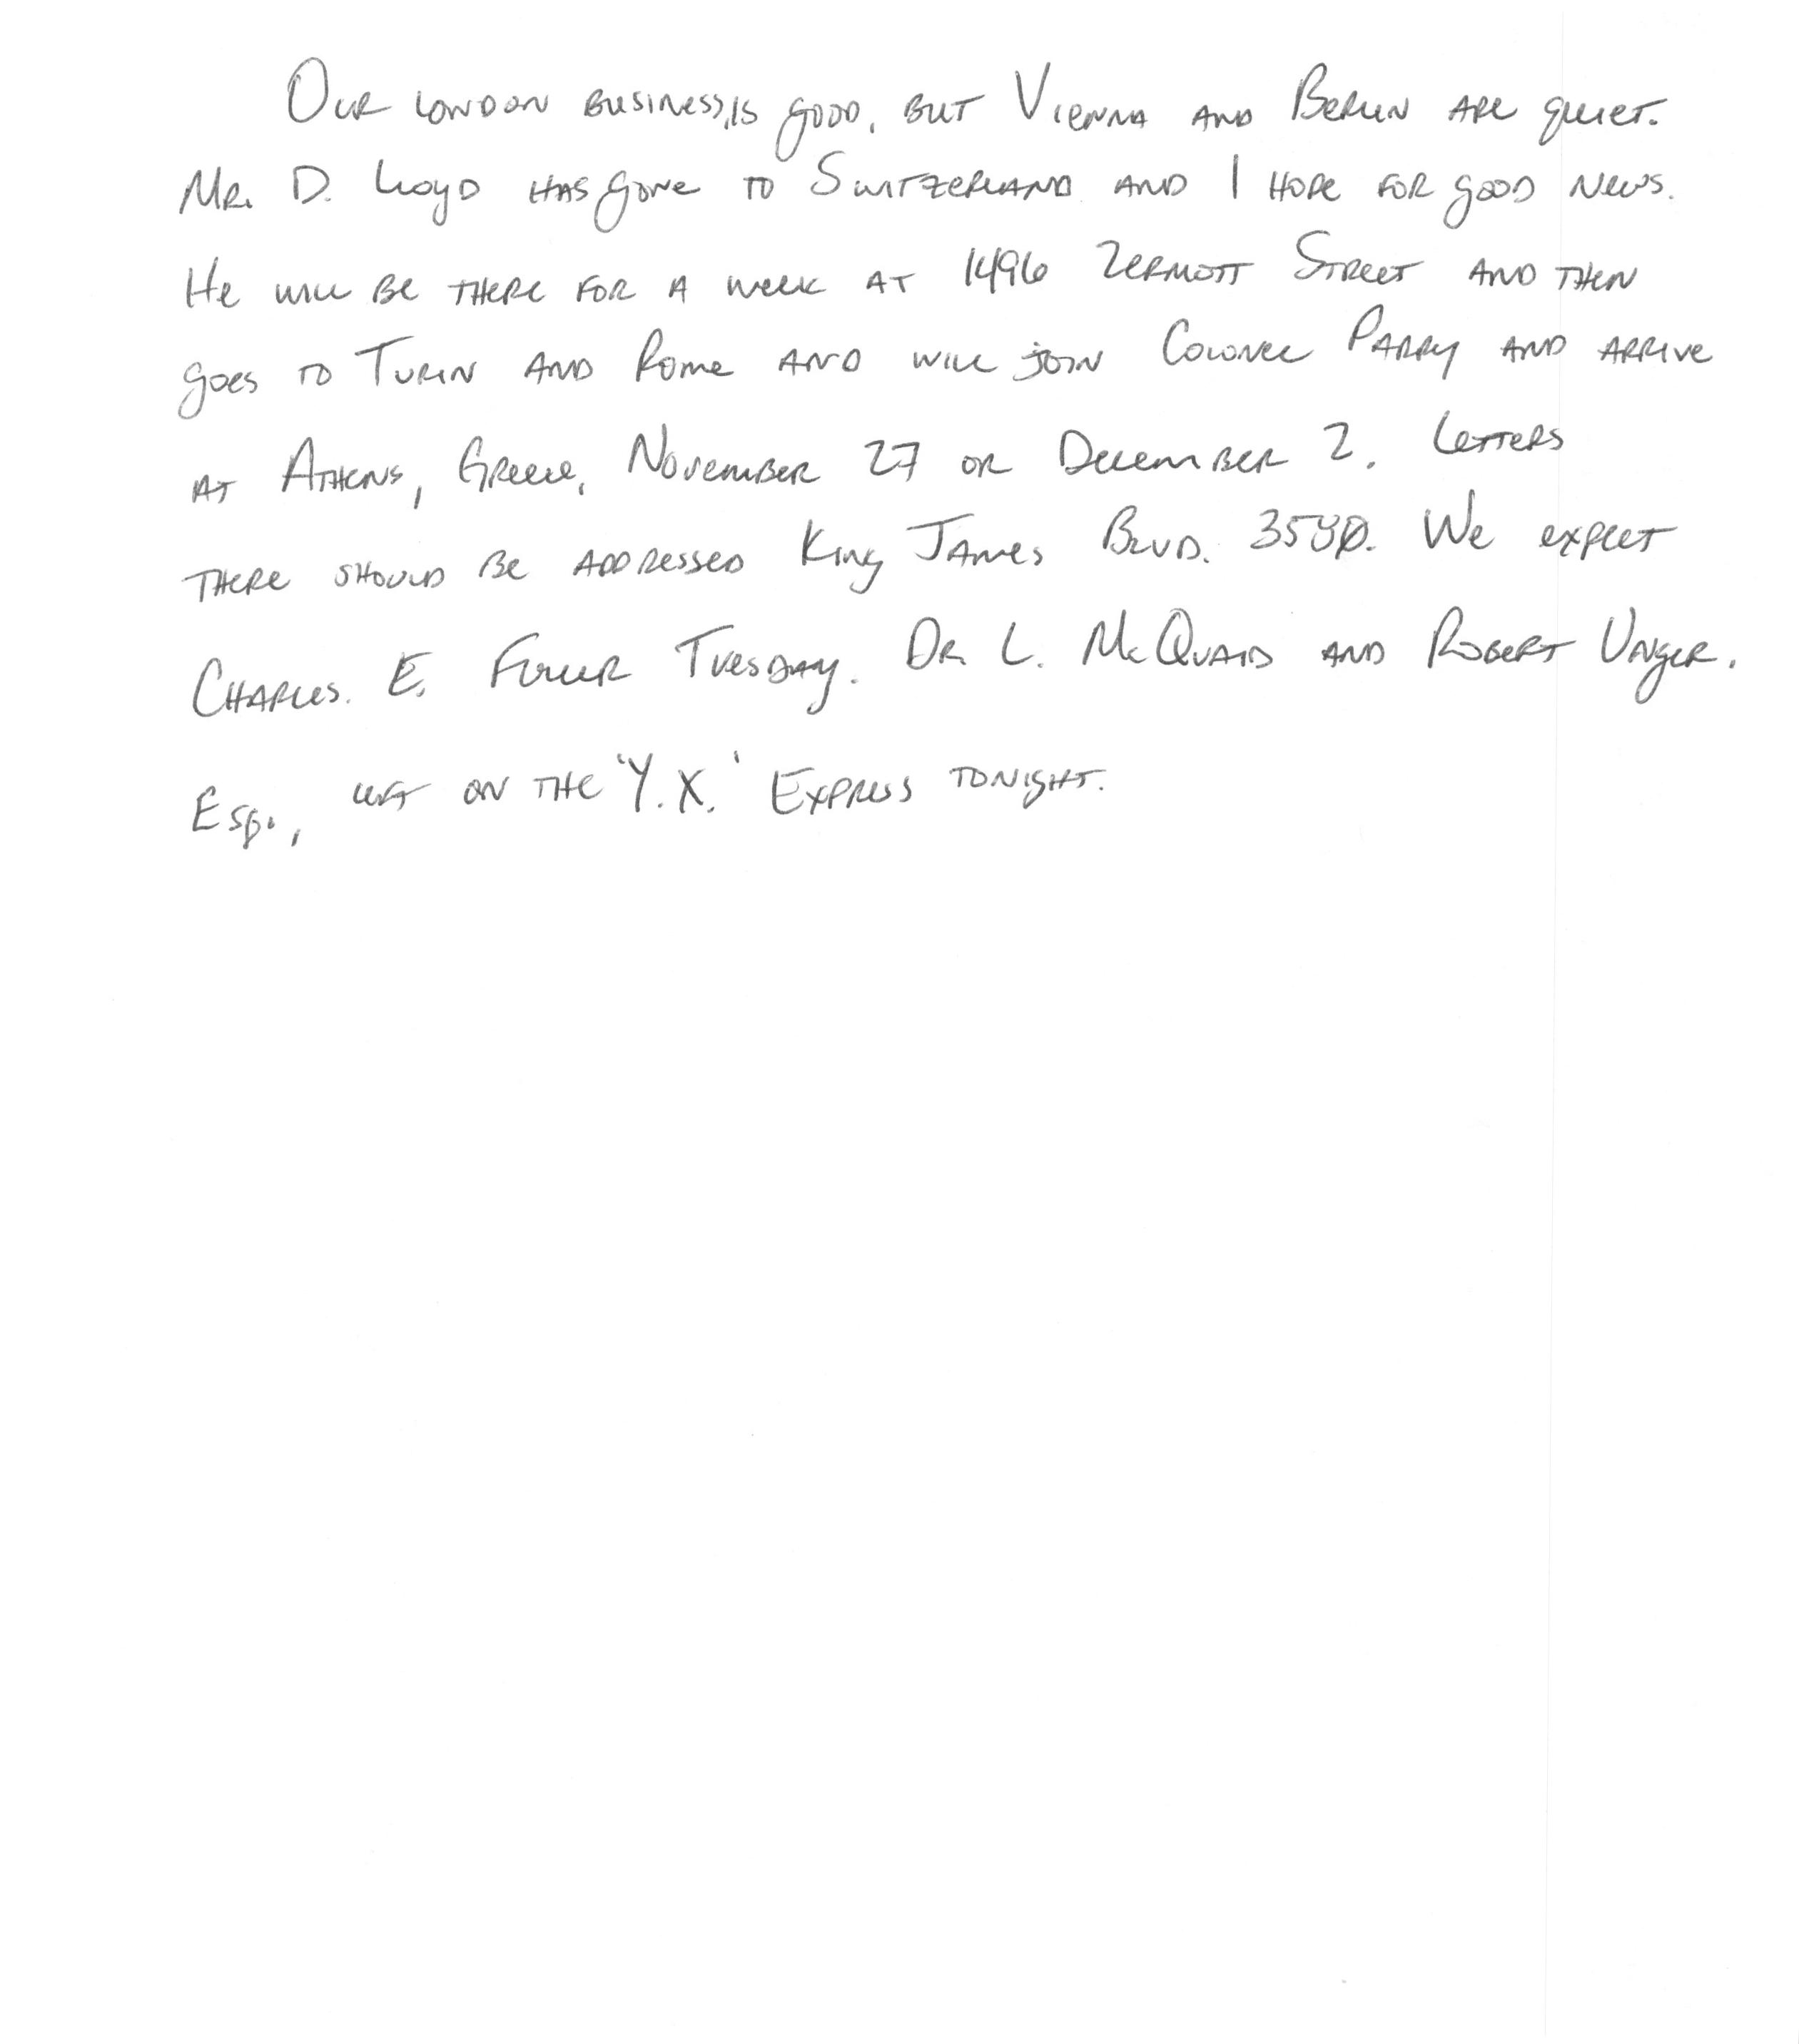 Our London business, is good, but Vienna and Berlin are quiet.
Mr. D. Lloyd has gone to Switzerland and I hope for good news.
He will be there for a week at 1496 Zermott Street and then
goes to Turin and Rome and will join Colonel Parry and arrive
at Athens, Greece, November 27 or December 2. Letters
there should be addressed King James Blvd. 3580. We expect
Charles. E. Fuller Tuesday. Dr. L. McQuaid and Robert Unger.
Esq., left on the 'Y.X.' Express tonight.